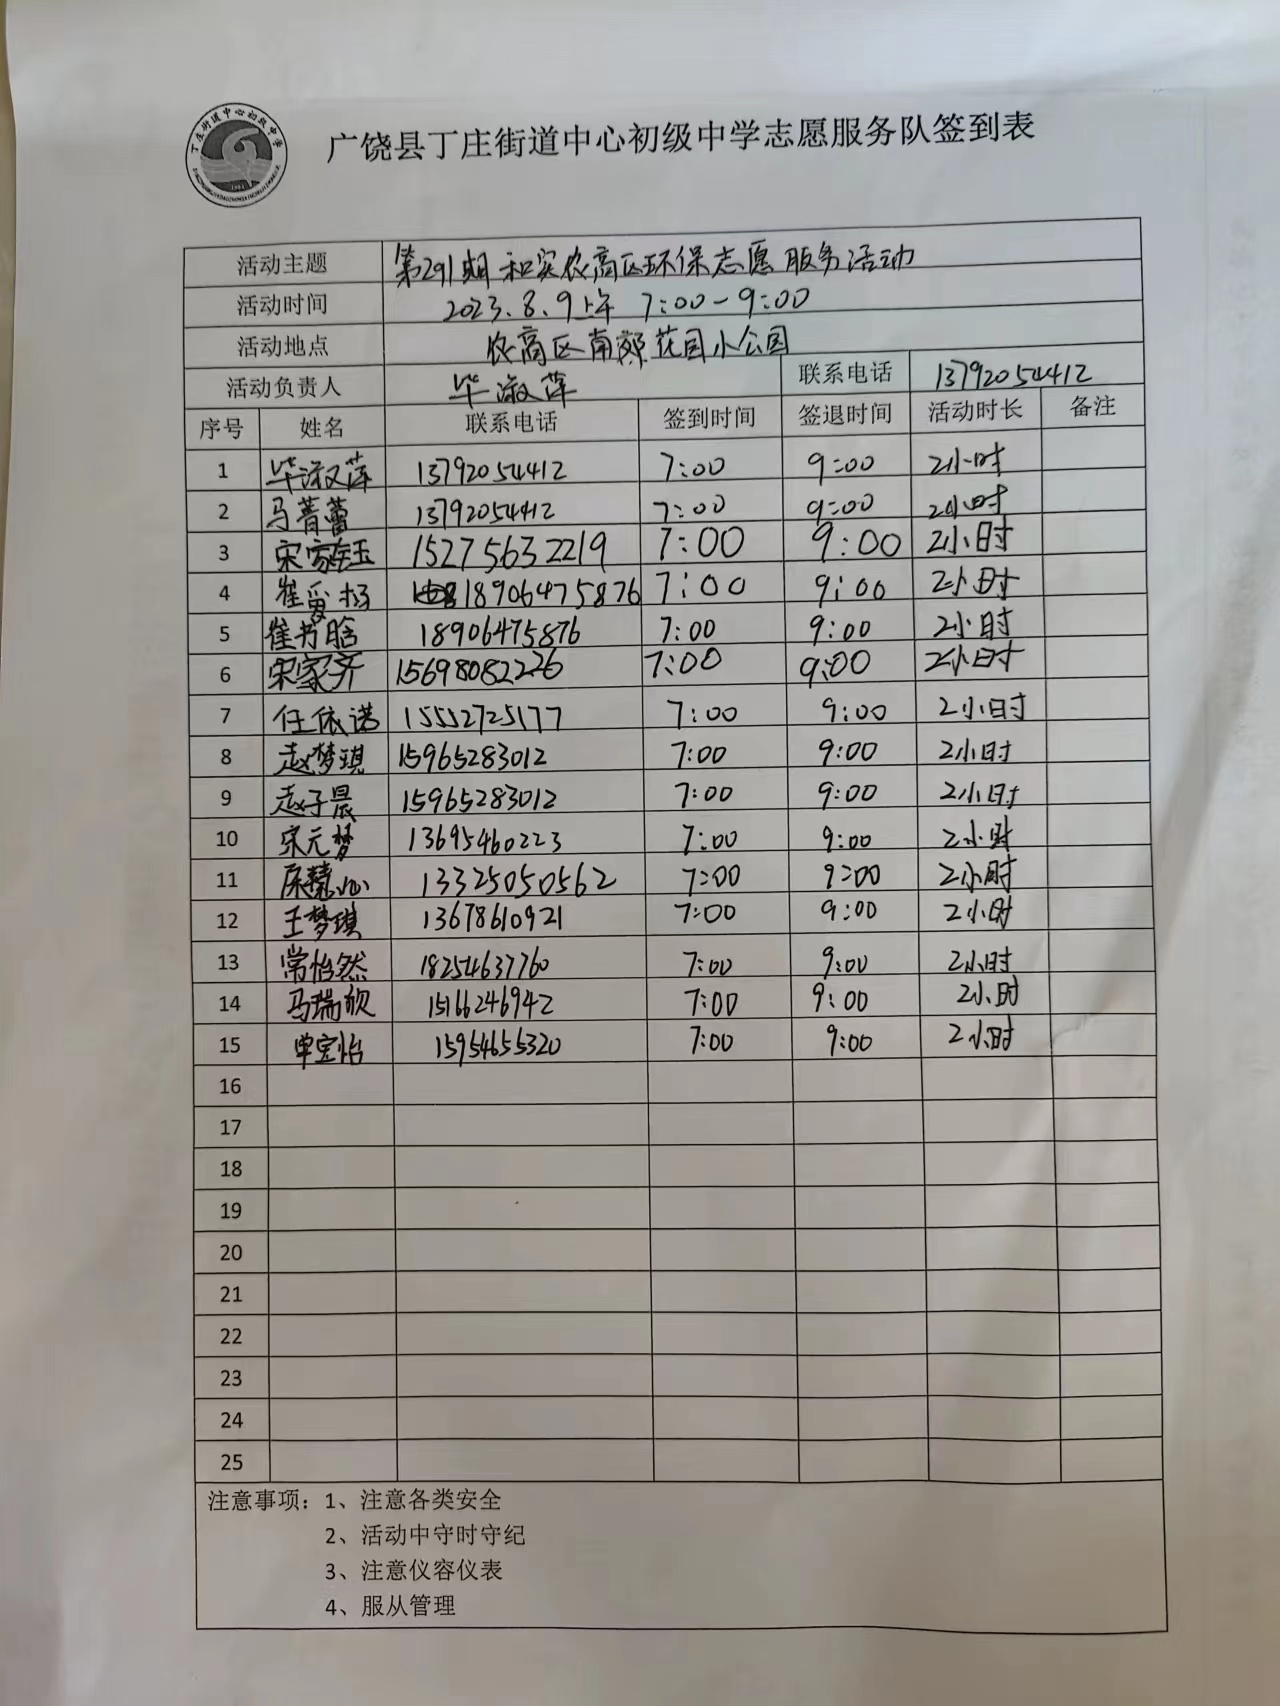 丁庄街道中心初级中学
1984
广饶县丁庄街道中心初级中学志愿服务队签到表
活动主题 第291期和实农高区环保志愿服务活动
活动时间 2023.8.9上午 7:00-9:00
活动地点 农高区南郊花园小公园
活动负责人 毕淑萍 联系电话 13792054412
序号 姓名 联系电话 签到时间 签退时间 活动时长 备注
1 毕淑萍 13792054412 7:00 9:00 2小时
2 马菁蕾 13792054412 7:00 9:00 2小时
3 宋家钰 15275632219 7:00 9:00 2小时
4 崔爱杨 18906475876 7:00 9:00 2小时
5 崔书晗 18906475876 7:00 9:00 2小时
6 宋家齐 15698082226 7:00 9:00 2小时
7 任依诺 15552725177 7:00 9:00 2小时
8 赵梦琪 15965283012 7:00 9:00 2小时
9 赵子晨 15965283012 7:00 9:00 2小时
10 宋元梦 13695460223 7:00 9:00 2小时
11 13325050562 7:00 9:00 2小时
12 王梦琪 13678610921 7:00 9:00 2小时
13 常怡然 18254637760 7:00 9:00 2小时
14 马瑞欣 15166246942 7:00 9:00 2小时
15 单宝怡 15954655320 7:00 9:00 2小时
16
17
18
19
20
21
22
23
24
25
注意事项：1、注意各类安全
2、活动中守时守纪
3、注意仪容仪表
4、服从管理